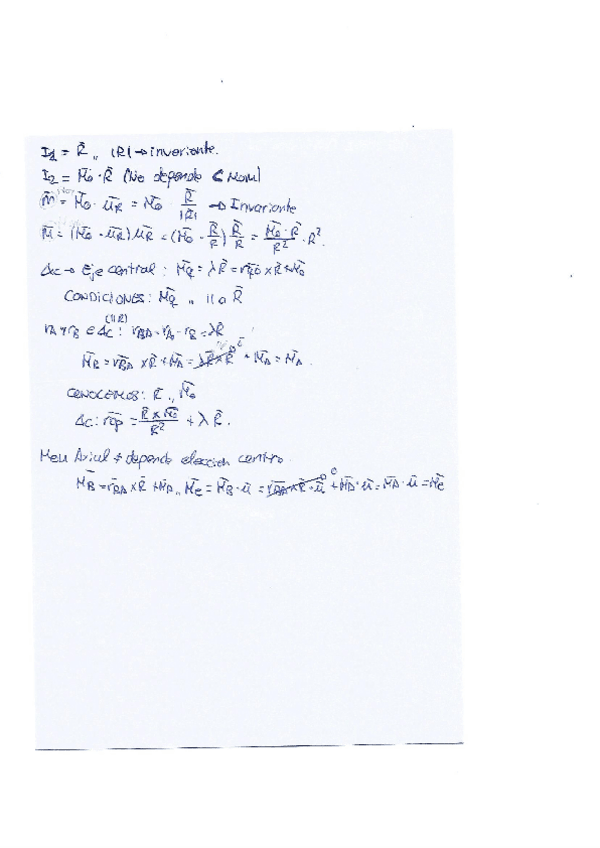 I₁ = R̄ ,, |R| → invariante.
I₂ = M̄o · R̄ (No depende C Mom)
m̄ = M̄o · ūR = M̄o · R̄/|R| → Invariante
m̄ = (M̄o · ūR) ūR = (M̄o · R̄/R) R̄/R = M̄o · R̄/R² · R².
Δc → Eje central: M̄q = λR̄ = rqo × R̄ + M̄o
CONDICIONES: M̄q ,, || a R̄
rA y rB ∈ Δc: (|| R) rBA = rA - rB = λR̄
M̄B = rBA × R̄ + M̄A = λR̄ × R̄ + M̄A = M̄A.
CONOCEMOS: R̄ ,, M̄o
Δc: rop = R̄ × M̄o/R² + λR̄.
Mom Axial ≠ depende eleccion centro.
M̄B = rBA × R̄ + M̄A ,, M̄e = M̄B · ū = rBA × R̄ · ū 0 + M̄A · ū = M̄A · ū = M̄e